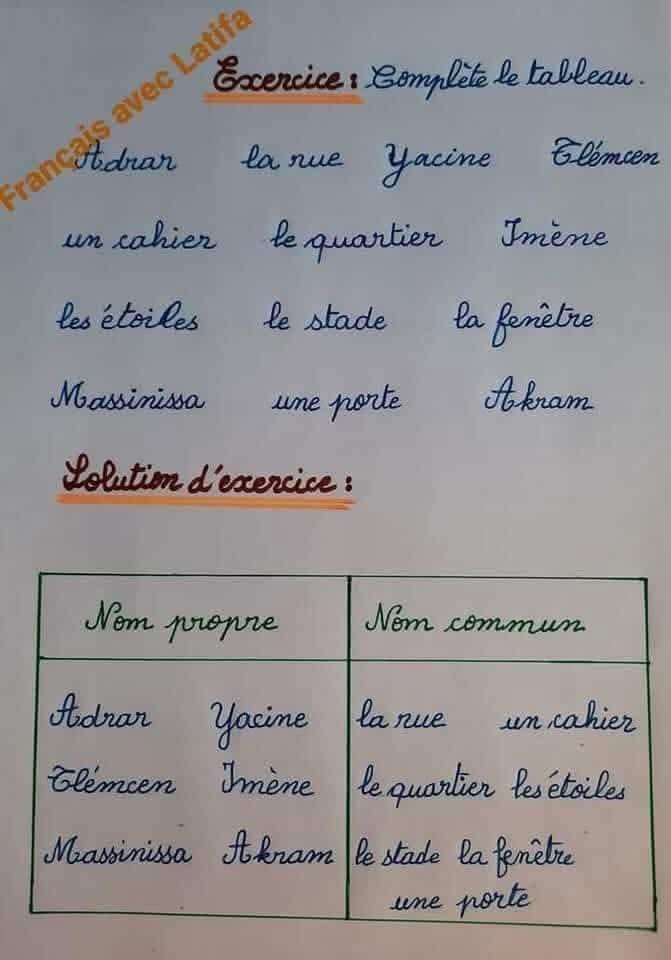 Français avec Latifa
Exercice : Complète le tableau.
Adrar la rue Yacine Tlémcen
un cahier le quartier Imène
les étoiles le stade la fenêtre
Massinissa une porte Akram
Solution d'exercice :
Nom propre Nom commun
Adrar Yacine la rue un cahier
Tlémcen Imène le quartier les étoiles
Massinissa Akram le stade la fenêtre
une porte